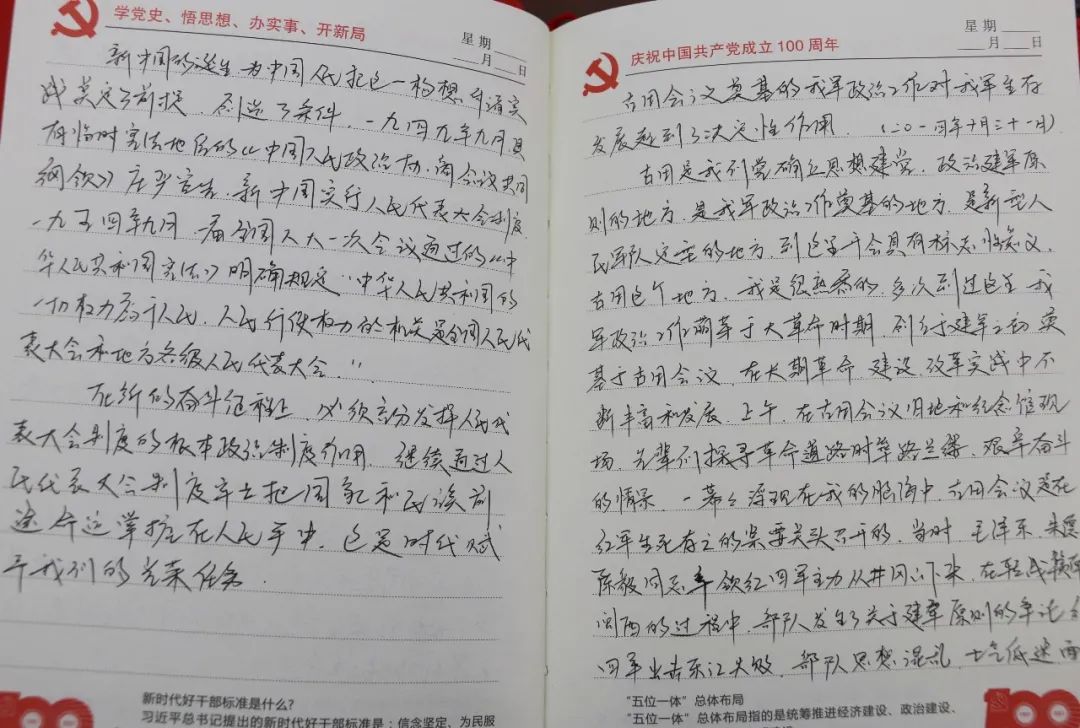 学党史、悟思想、办实事、开新局
星期
月 日
新中国的诞生,为中国人民把这一构想付诸实
践奠定了前提,创造了条件,一九四九年九月,具
有临时宪法地位的《中国人民政治协商会议共同
纲领》庄严宣告,新中国实行人民代表大会制度,
一九五四年九月,一届全国人大一次会议通过的《中
华人民共和国宪法》明确规定:“中华人民共和国的
一切权力属于人民,人民行使权力的机关是全国人民代
表大会和地方各级人民代表大会。”
在新的奋斗征程上,必须充分发挥人民代
表大会制度的根本政治制度作用,继续通过人
民代表大会制度牢牢把国家和民族前
途命运掌握在人民手中,这是时代赋
予我们的光荣任务.
新时代好干部标准是什么?
习近平总书记提出的新时代好干部标准是:信念坚定、为民服
庆祝中国共产党成立100周年
星期
月 日
古田会议奠基的我军政治工作对我军生存
发展起到了决定性作用.(二〇一四年十月三十一日)
古田是我们党确立思想建党、政治建军原
则的地方,是我军政治工作奠基的地方,是新型人
民军队定型的地方,到这里开会具有标志性意义,
古田这个地方,我是很熟悉的,多次到过这里,我
军政治工作萌芽于大革命时期,创立于建军之初,奠
基于古田会议,在长期革命、建设、改革实践中不
断丰富和发展,上午,在古田会议旧址和纪念馆现
场,先辈们探寻革命道路时筚路蓝缕、艰辛奋斗
的情景,一幕幕浮现在我的脑海中,古田会议是在
红军生死存亡的紧要关头召开的,当时,毛泽东、朱德
陈毅同志率领红四军主力从井冈山下来,在转战赣南
闽西的过程中,部队发生了关于建军原则的争论,
四军出击东江失败,部队思想混乱,士气低迷,面
“五位一体”总体布局
“五位一体”总体布局指的是统筹推进经济建设、政治建设、